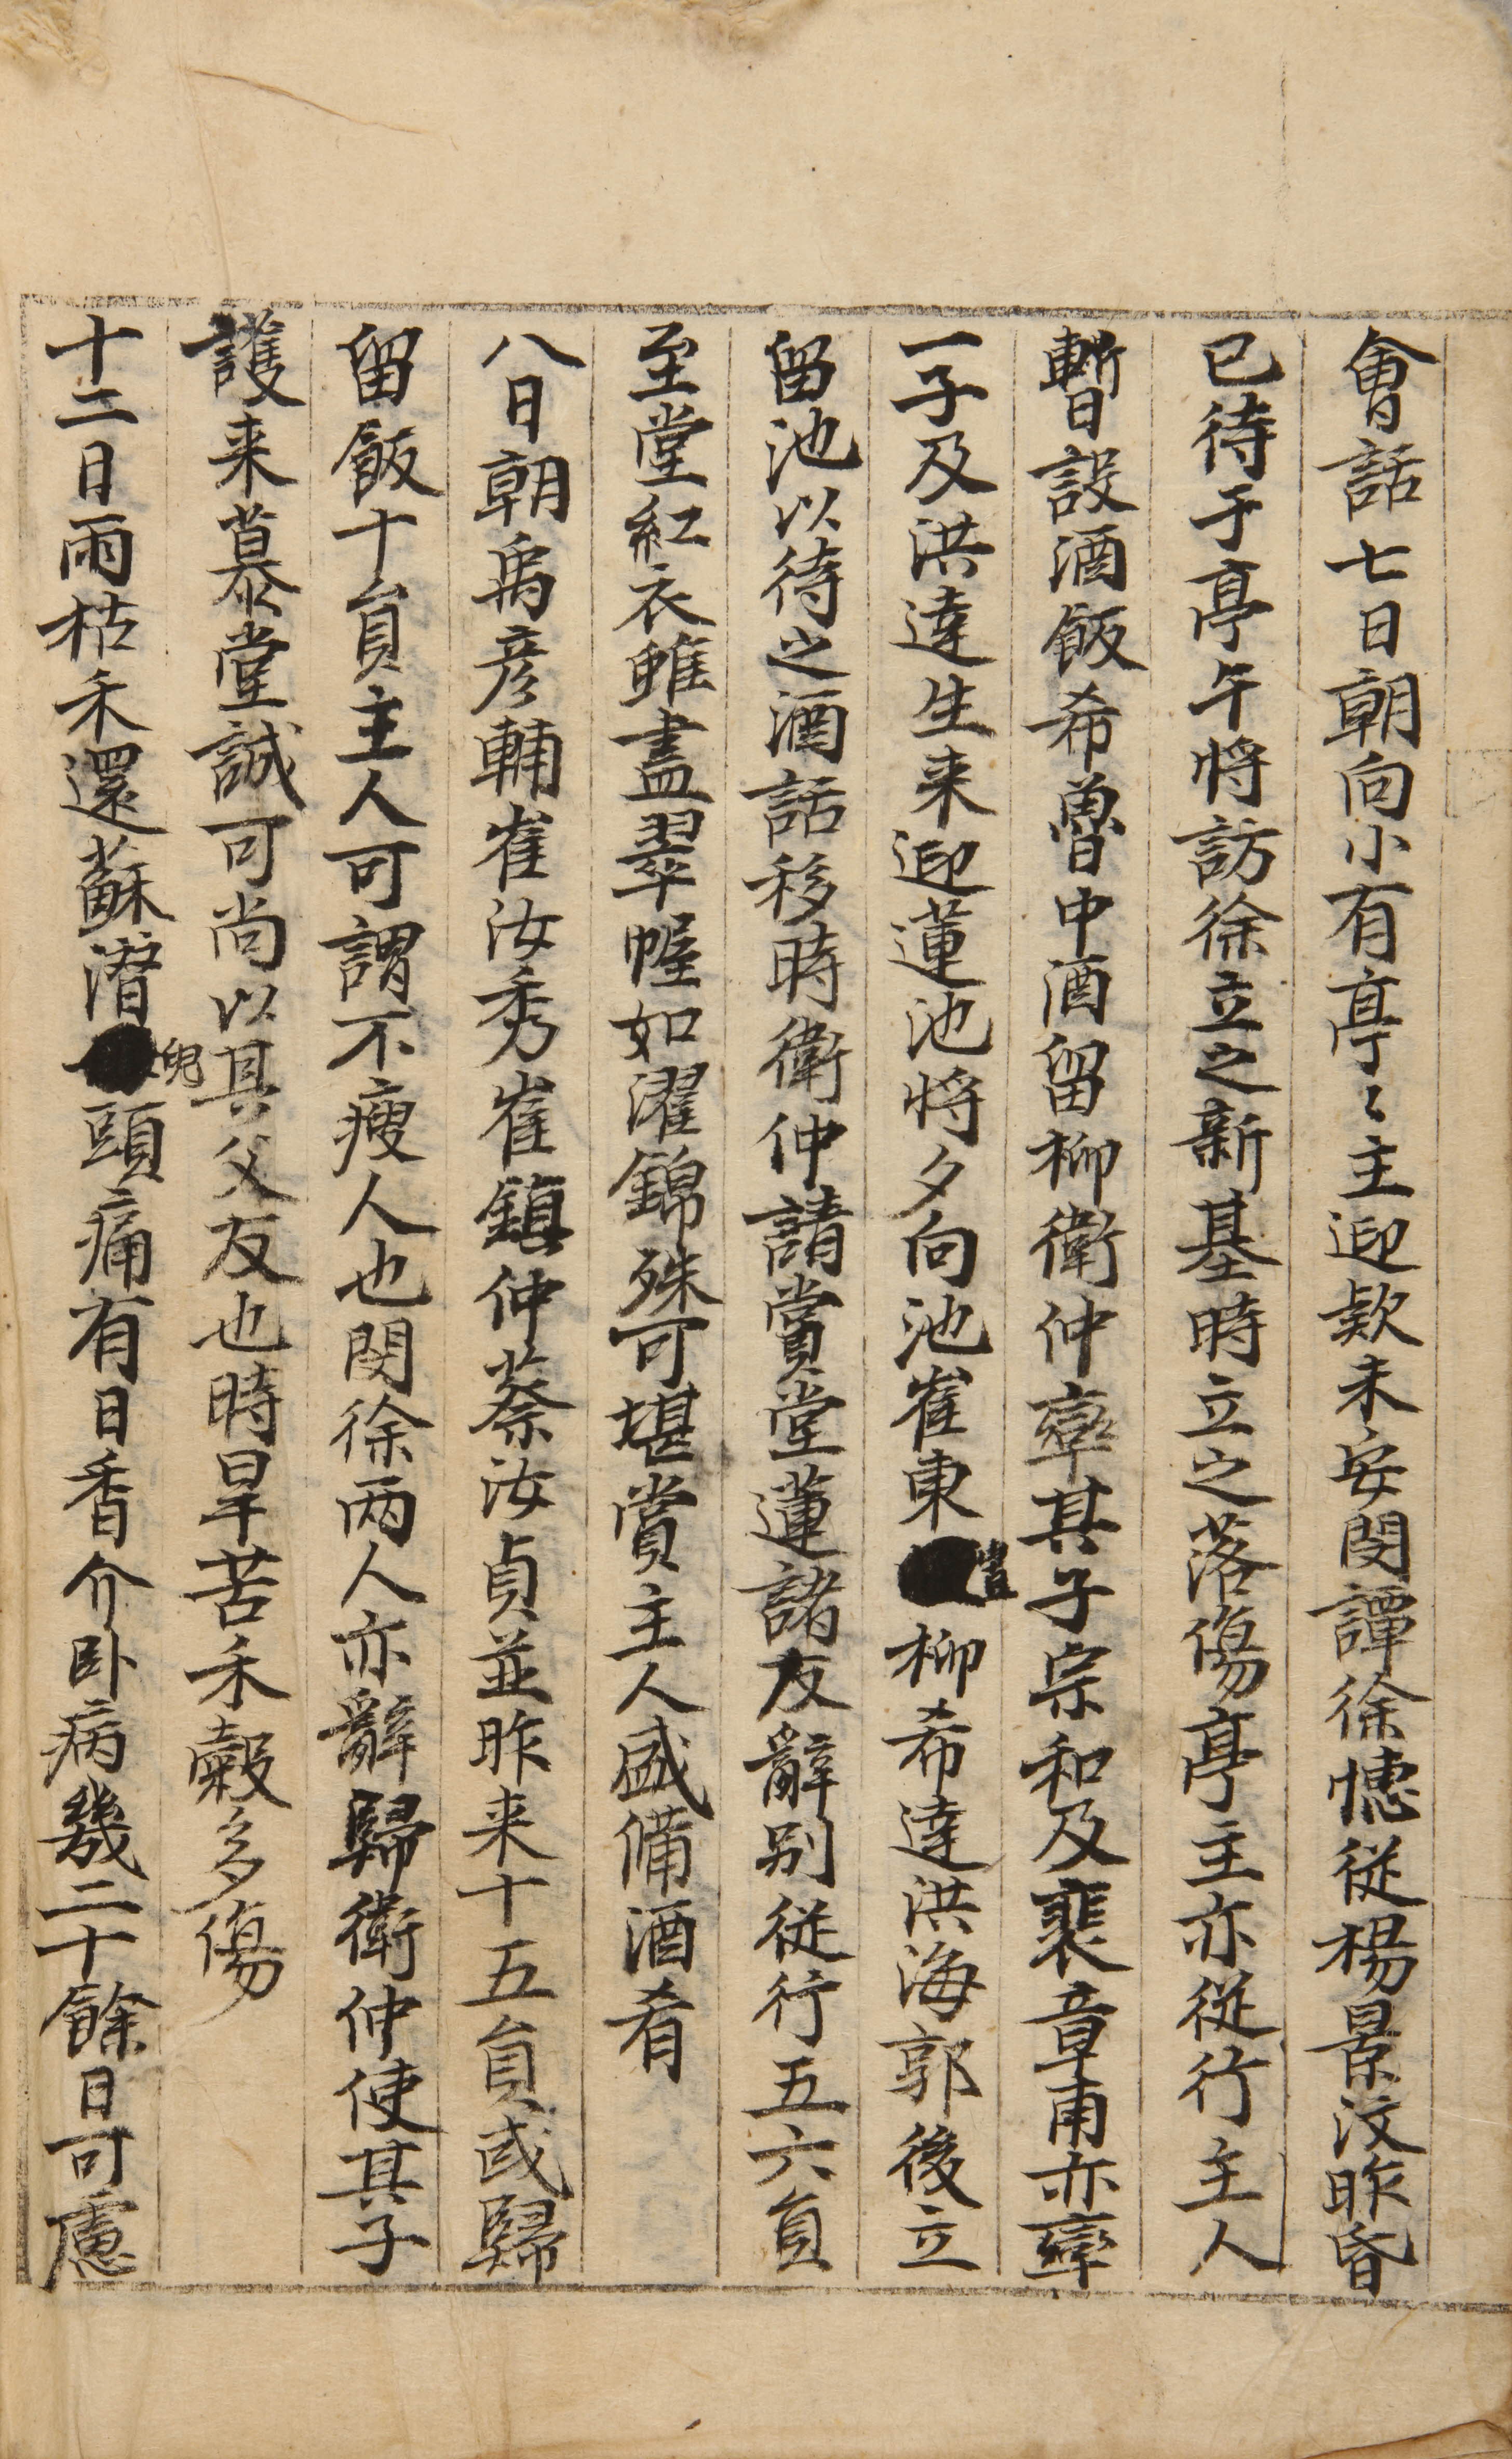 會話 七日朝向小有亭〻主迎欵未安閔譚徐憓從楊景汶昨昏
已待于亭午將訪徐立之新基時立之落傷亭主亦從行主人
暫設酒飯希魯中酒留柳衛仲率其子宗和及裴章甫亦率
一子及洪達生来迎蓮池將夕向池崔東嵦柳希達洪海郭後立
留池以待之酒話移時衛仲請賞堂蓮諸友辭別從行五六員
至堂紅衣雖盡翠幄如濯錦殊可堪賞主人盛備酒肴
八日朝禹彦輔崔汝秀崔鎮仲蔡汝貞並昨来十五員或歸
留飯十員主人可謂不瘦人也閔徐两人亦辭歸衛仲使其子
護来慕堂誠可尚以其父友也時旱苦禾穀多傷
十二日雨枯禾還蘇潛兒頭痛有日香介卧病幾二十餘日可慮